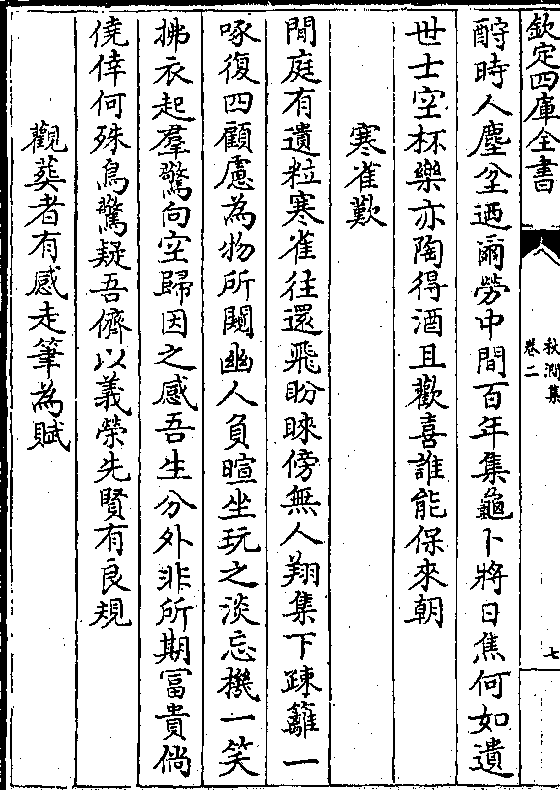 欽定四庫全書
秋澗集
卷二
七
酹時人塵坌迺爾勞中間百年集龜卜將日焦何如遺
世士空杯樂亦陶得酒且歡喜誰能保來朝
寒雀歎
閒庭有遺粒寒雀往還飛盼睞傍無人翔集下踈籬一
啄復四顧慮為物所闚幽人負暄坐玩之淡忘機一笑
拂衣起羣驚向空歸因之感吾生分外非所期冨貴倘
僥倖何殊鳥驚疑吾儕以義榮先賢有良規
觀葬者有感走筆為賦